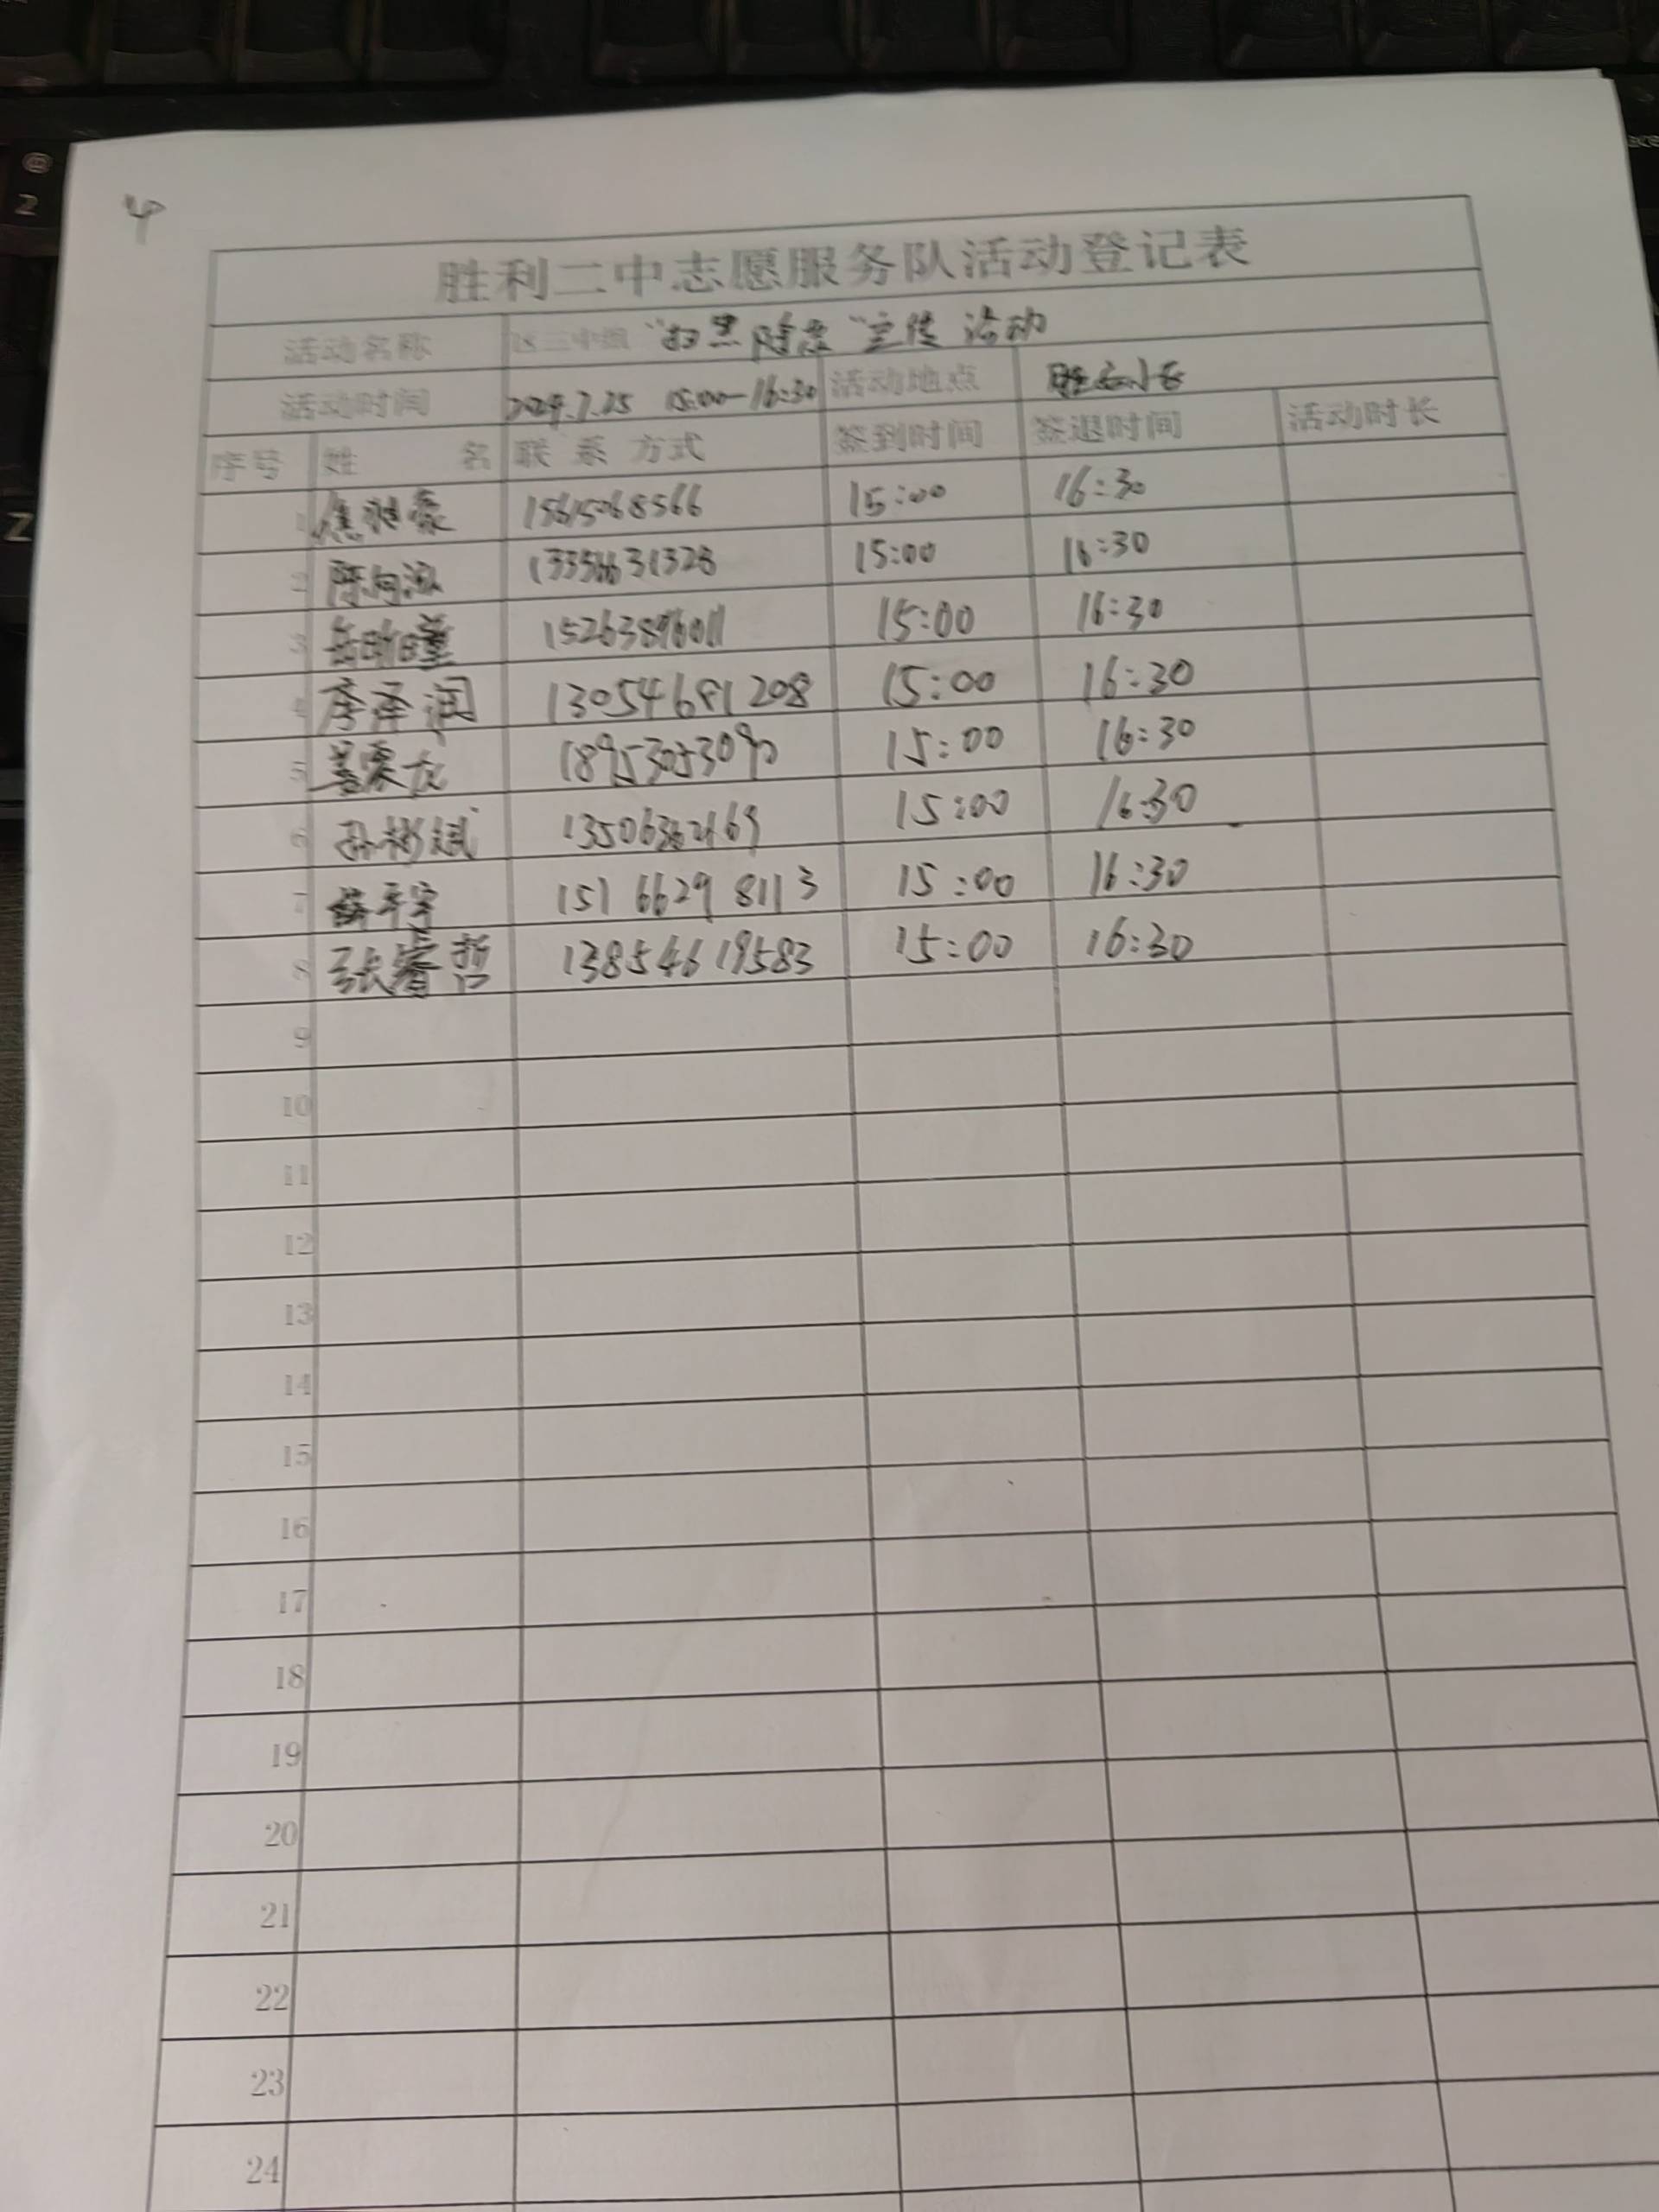 4
胜利二中志愿服务队活动登记表
活动名称 "扫黑除恶"宣传 活动
活动时间 2024.7.25 15:00-16:30 活动地点
序号 姓 名 联 系 方式 签到时间 签退时间 活动时长
1 15615068566 15:00 16:30
2 15:00 16:30
3 15:00 16:30
4 序泽润 13054681208 15:00 16:30
5 18953053090 15:00 16:30
6 孙彬斌 15:00 16:30
7 薛平宇 151 6629 8113 15:00 16:30
8 张睿哲 13854619583 15:00 16:30
9
10
11
12
13
14
15
16
17
18
19
20
21
22
23
24